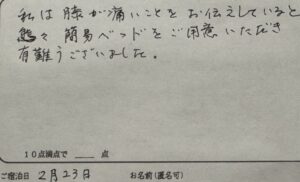 私は膝が痛いことをお伝えしていると
態々簡易ベッドをご用意いただき
有難うございました。
10点満点で 点
ご宿泊日 2月23日 お名前(匿名可)